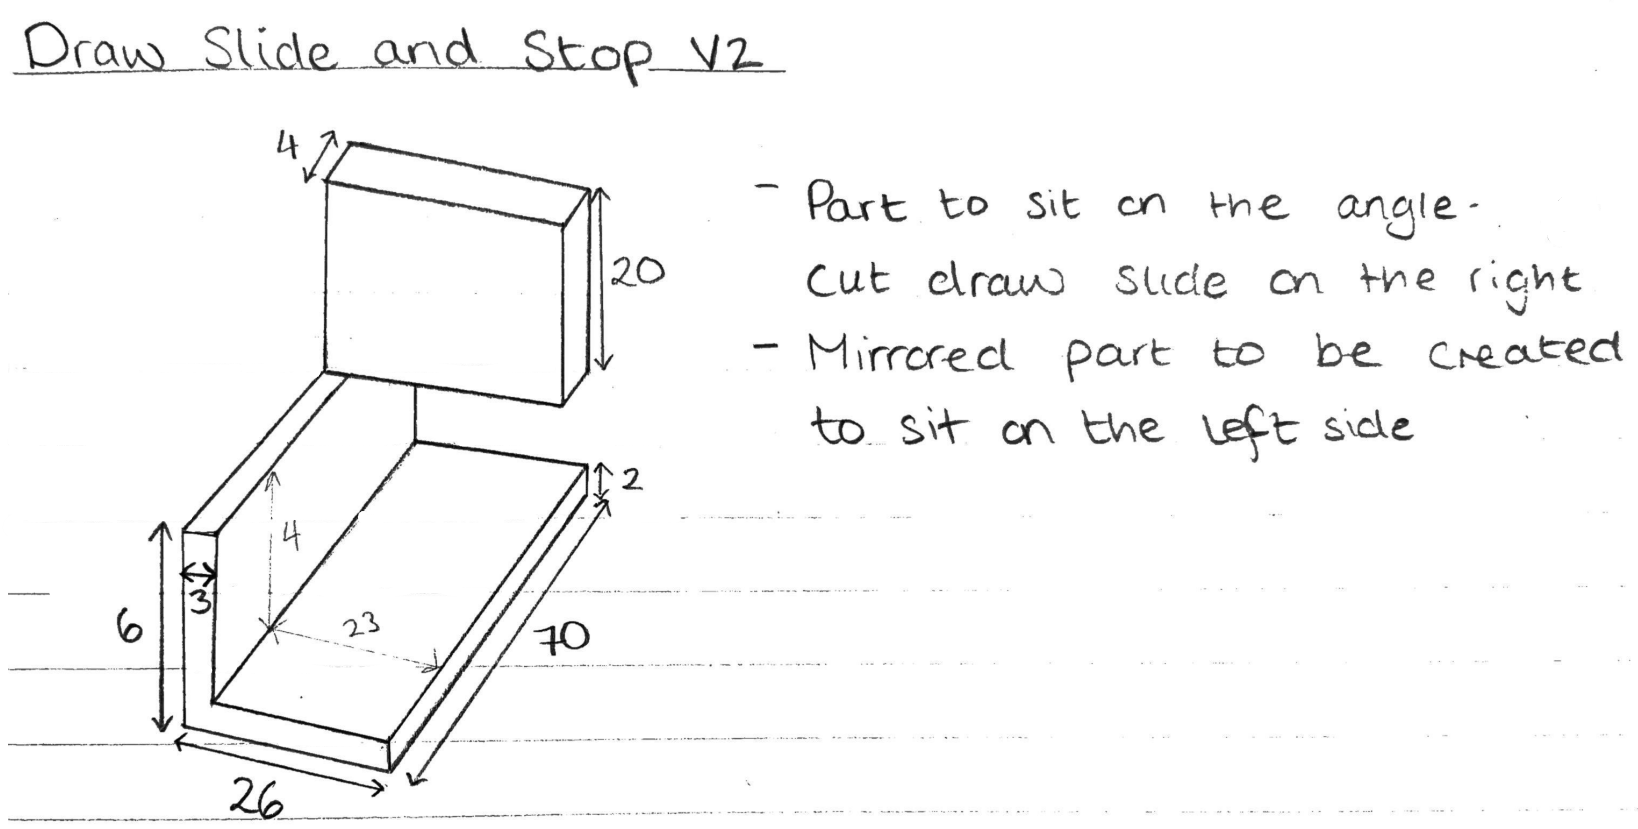 Draw Slide and Stop V2
4
20
- Part to sit on the angle.
cut draw slide on the right
- Mirrored part to be created
to sit on the left side
2
4
3
6
23
70
26